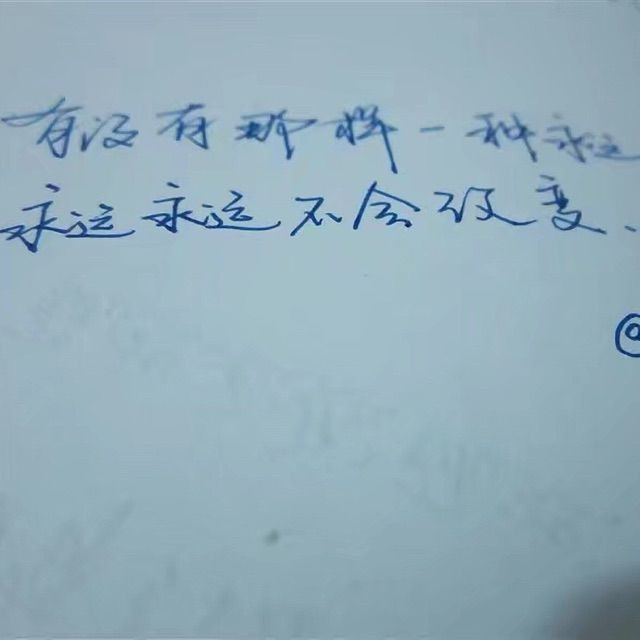 有没有那样一种永远
永远永远不会改变.
@